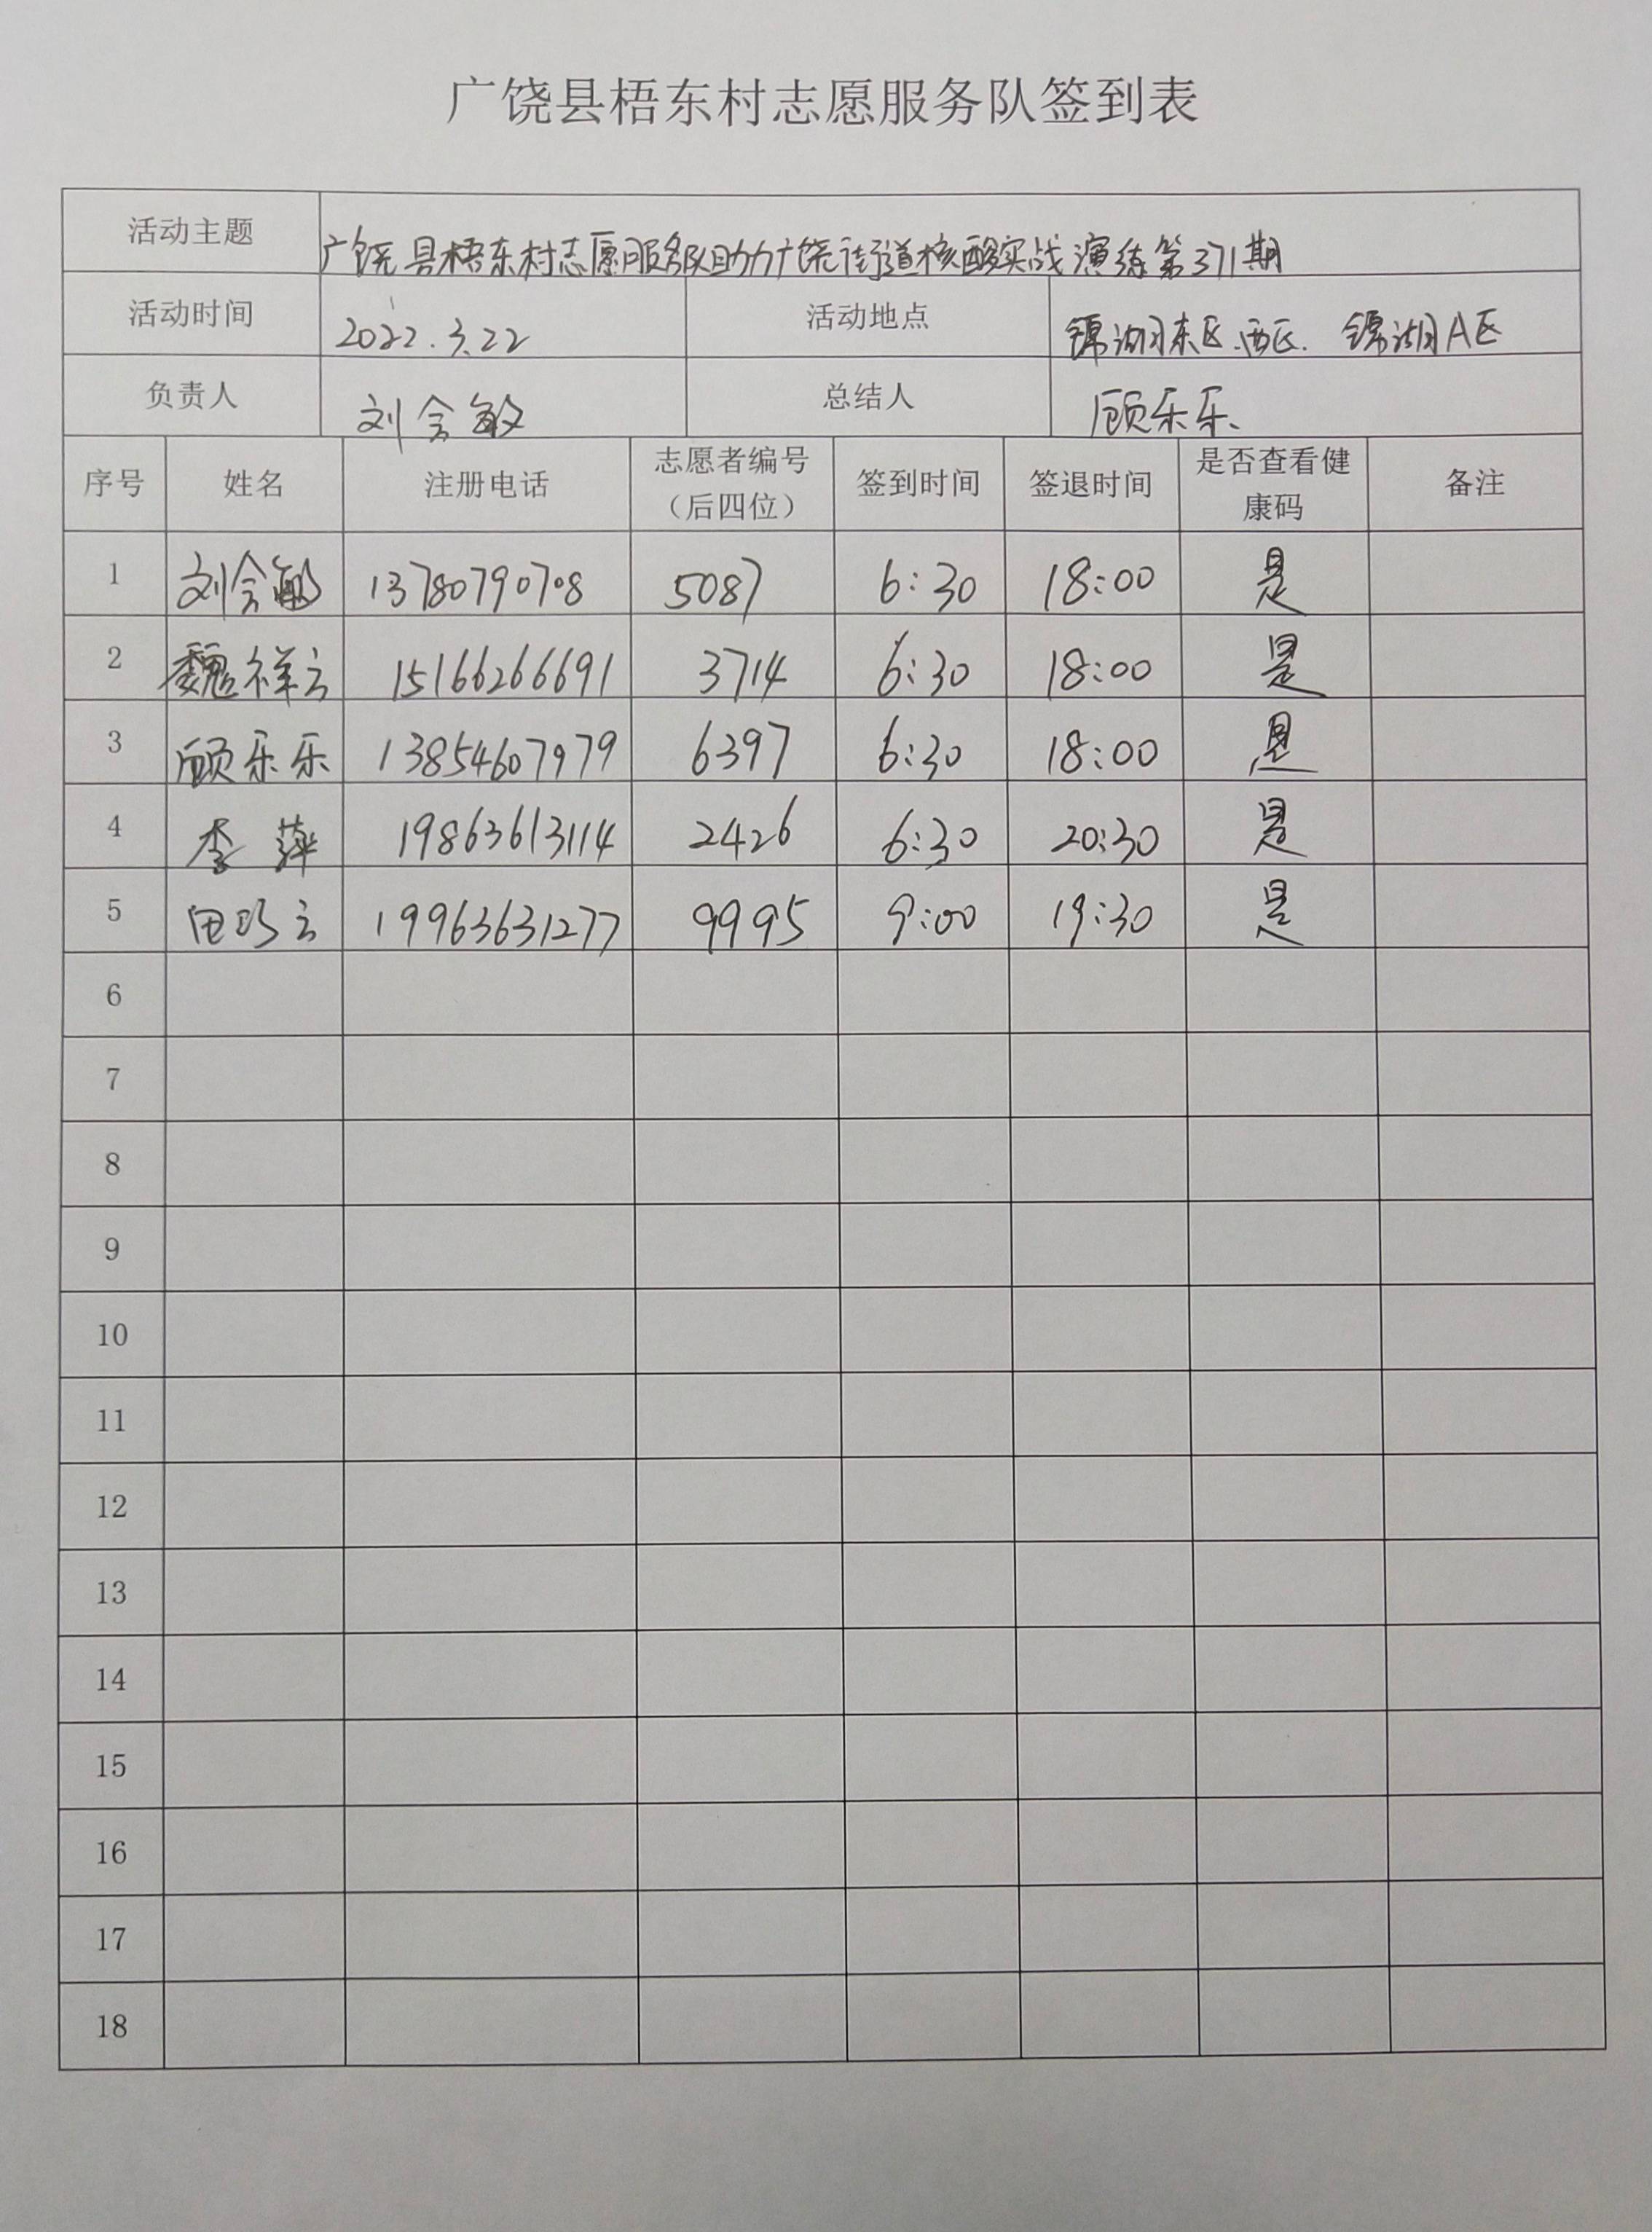 广饶县梧东村志愿服务队签到表
活动主题 广饶县梧东村志愿服务队助力广饶街道核酸实战演练第371期
活动时间 2022.3.22 活动地点 锦湖东区.西区. 锦湖A区
负责人 刘会敏 总结人 顾乐乐
序号 姓名 注册电话 志愿者编号（后四位） 签到时间 签退时间 是否查看健康码 备注
1 刘会敏 13780790708 5087 6:30 18:00 是
2 魏祥云 15166266691 3714 6:30 18:00 是
3 顾乐乐 13854607979 6397 6:30 18:00 是
4 李萍 19863613114 2426 6:30 20:30 是
5 田巧云 19963631277 9995 9:00 19:30 是
6
7
8
9
10
11
12
13
14
15
16
17
18